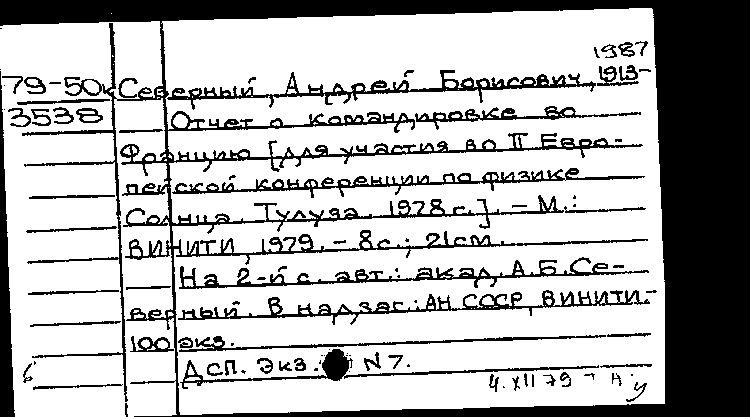 1987
79-50к Северный, Андрей Борисович, 1913-
3538 Отчет о командировке во
Францию [для участия во II Евро-
пейской конференции по физике
Солнца. Тулуза. 1978 г.]. - М.:
ВИНИТИ, 1979. - 8 с.; 21 см.
На 2-й с. авт.: акад. А.Б. Се-
верный. В надзаг.: АН СССР, ВИНИТИ.-
100 экз.
ДСП. Экз. N 7.
4.XII 79